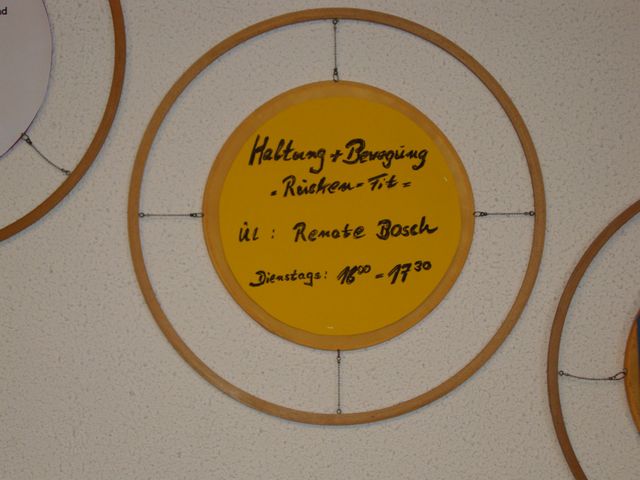 Haltung + Bewegung
- Rücken - Fit -
ÜL : Renate Bosch
Dienstags: 16⁰⁰ - 17³⁰